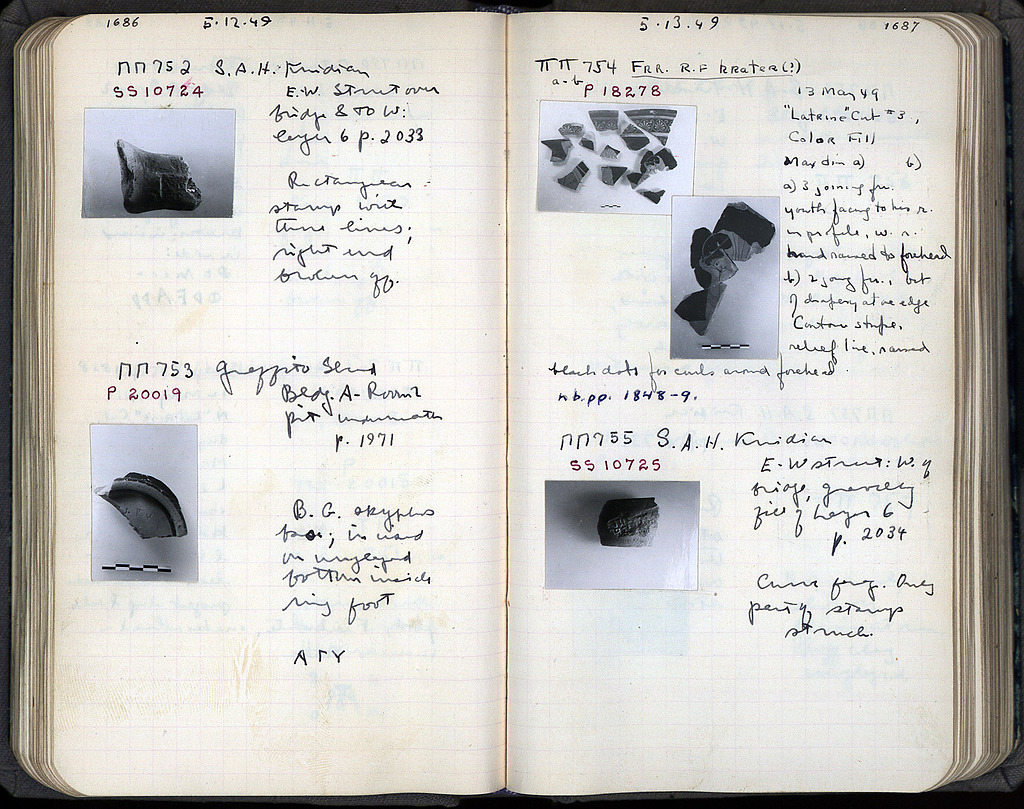 1686 5·12·49
ΠΠ 752 S.A.H. Knidian
SS 10724 E.W. Street over
bridge & to W:
layer 6 p. 2033
Rectangular
stamp with
three lines;
right end
broken off.
ΠΠ 753 Graffito Sherd
P 20019 Bldg. A - Room 2
pit underneath
p. 1971
B. G. skyphos
base; incised
on unglazed
bottom inside
ring foot
ΑΓΥ
5·13·49 1687
ΠΠ 754 Frr. R.F krater(?)
a-b P 18278 13 May 49
"Latrine" Cut #3,
Color Fill
Max dim a) b)
a) 3 joining frr.
youth facing to his r.
in profile, w. r.
hand raised to forehead
b) 2 joing frr., bit
of drapery at one edge
Contour stripe,
relief line, raised
black dots for curls around forehead.
nb. pp. 1848-9.
ΠΠ 755 S.A.H. Knidian
SS 10725 E-W street: W. of
bridge, gravelly
fill of Layer 6
p. 2034
Curved frag. Only
part of stamp
struck.